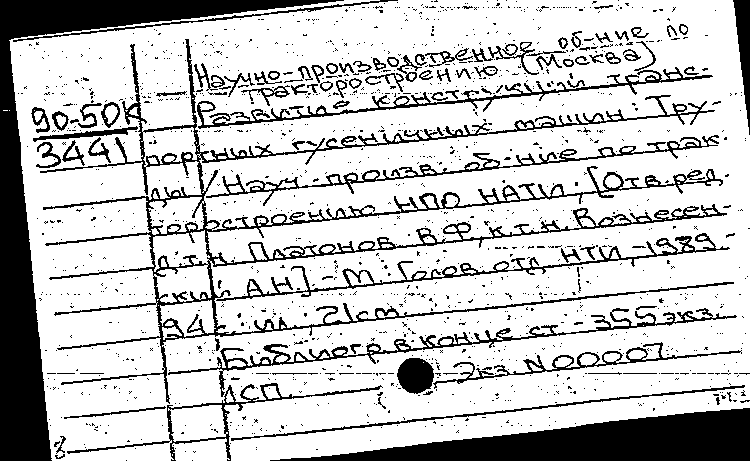 Научно-производственное об-ние по
тракторостроению (Москва)
90-50К
3441
Развитие конструкций транс-
портных гусеничных машин: Тру-
ды / Науч.-произв. об-ние по трак-
торостроению НПО НАТИ; [Отв. ред.
д.т.н. Платонов В.Ф., к.т.н. Вознесен-
ский А.Н.]. - М.: Голов. отд. НТИ, 1989. -
94 с.: ил.; 21 см.
Библиогр. в конце ст. - 355 экз.
Экз. N 00007.
ДСП.
8